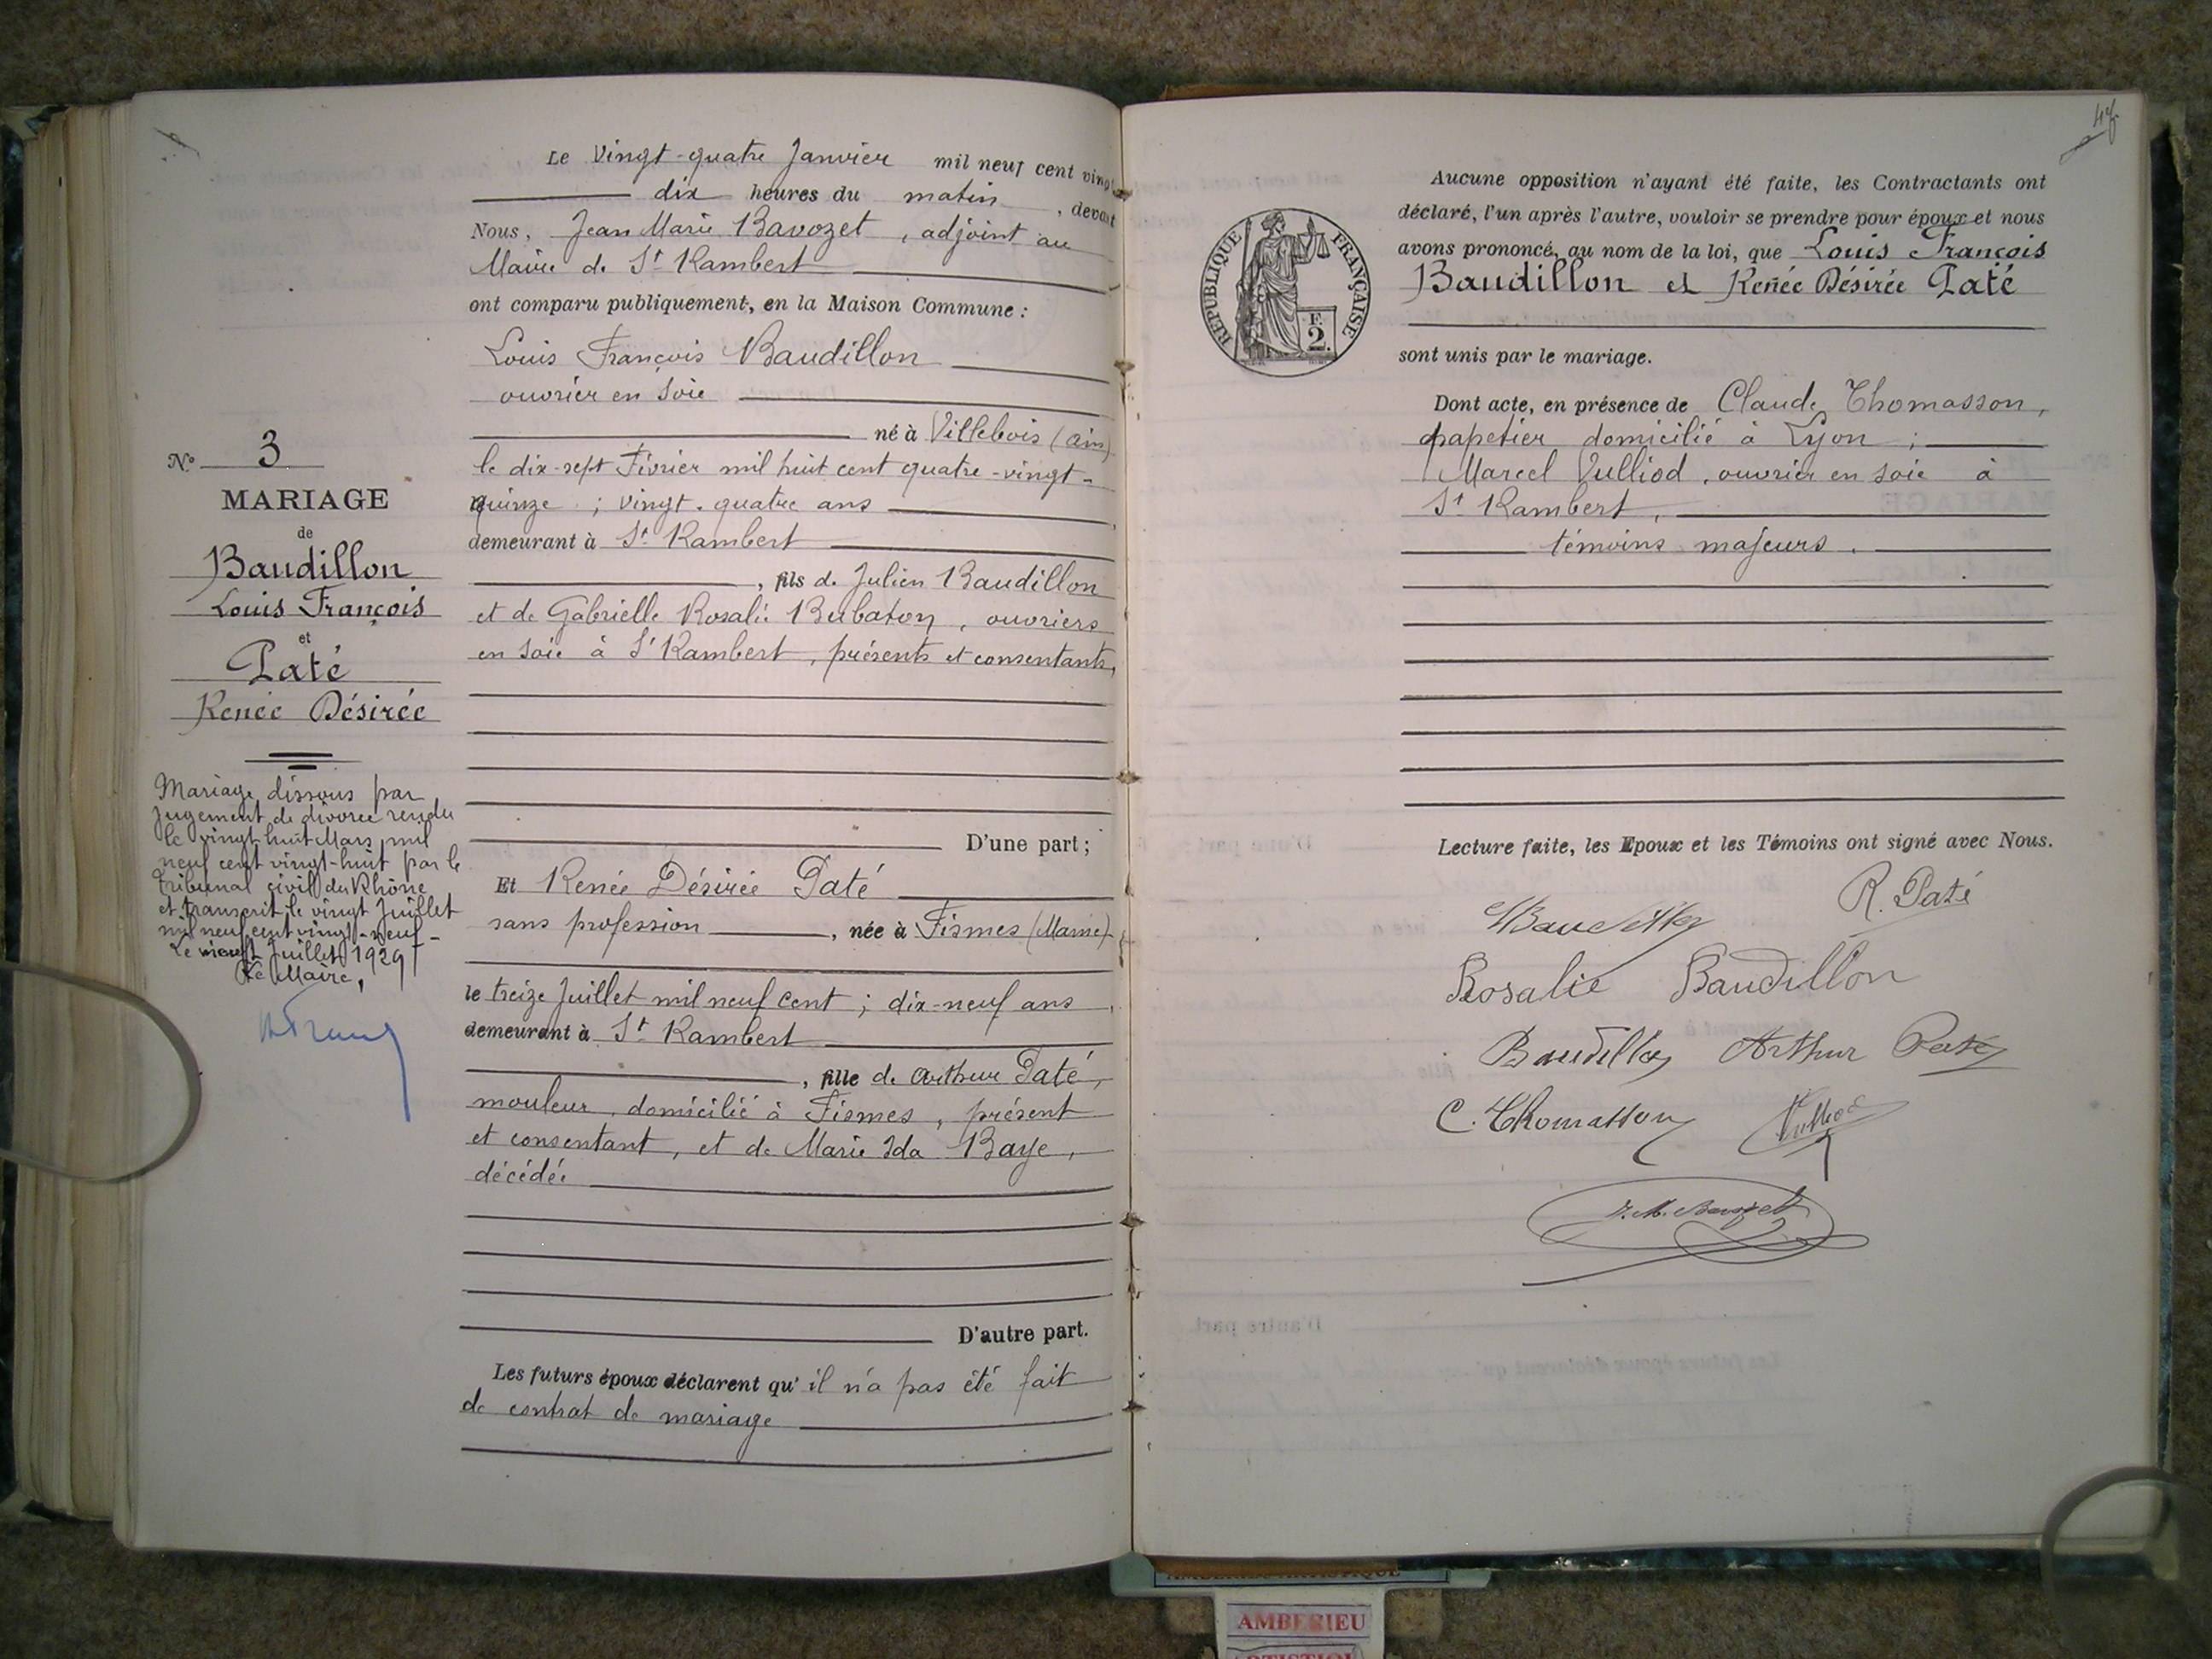 Le Vingt-quatre Janvier mil neuf cent vingt
dix heures du matin, devant
Nous, Jean Marie Bavozet, adjoint au
Maire de St Rambert
ont comparu publiquement, en la Maison Commune :
Louis François Baudillon
ouvrier en soie
né à Villebois (Ain)
le dix-sept Février mil huit cent quatre-vingt-
quinze ; vingt-quatre ans,
demeurant à St Rambert
, fils de Julien Baudillon
et de Gabrielle Rosalie Bubaton, ouvriers
en soie à St Rambert, présents et consentants,
D'une part ;
Et Renée Désirée Paté
sans profession, née à Fismes (Marne)
le treize Juillet mil neuf cent ; dix-neuf ans,
demeurant à St Rambert
, fille de Arthur Paté,
mouleur, domicilié à Fismes, présent
et consentant, et de Marie Ida Baye,
décédée
D'autre part.
Les futurs époux déclarent qu'il n'a pas été fait
de contrat de mariage
N° 3
MARIAGE
de
Baudillon
Louis François
et
Paté
Renée Désirée
Mariage dissous par
jugement de divorce rendu
le vingt huit Mars mil
neuf cent vingt-huit par le
Tribunal civil du Rhône
et transcrit le vingt Juillet
mil neuf cent vingt-neuf-
Le vingt Juillet 1929
Le Maire,
REPUBLIQUE FRANÇAISE
F.
2.
Aucune opposition n'ayant été faite, les Contractants ont
déclaré, l'un après l'autre, vouloir se prendre pour époux et nous
avons prononcé, au nom de la loi, que Louis François
Baudillon et Renée Désirée Paté
sont unis par le mariage.
Dont acte, en présence de Claude Thomasson,
papetier domicilié à Lyon ;
Marcel Vulliod, ouvrier en soie à
St Rambert,
témoins majeurs.
Lecture faite, les Epoux et les Témoins ont signé avec Nous.
R. Paté
Baudillon
Rosalie Baudillon
Baudillon Arthur Paté
C. Thomasson Vulliod
J. M. Bavozet
AMBERIEU